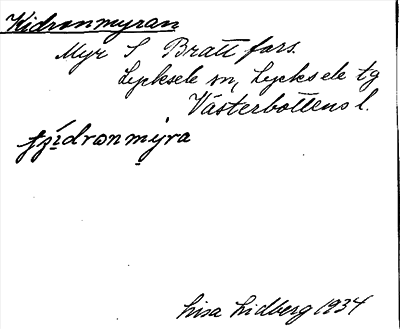 Kidronmyran
Myr S Bratt fors.
Lycksele sn, Lycksele tg
Västerbottens l.
Lisa Lidberg 1934